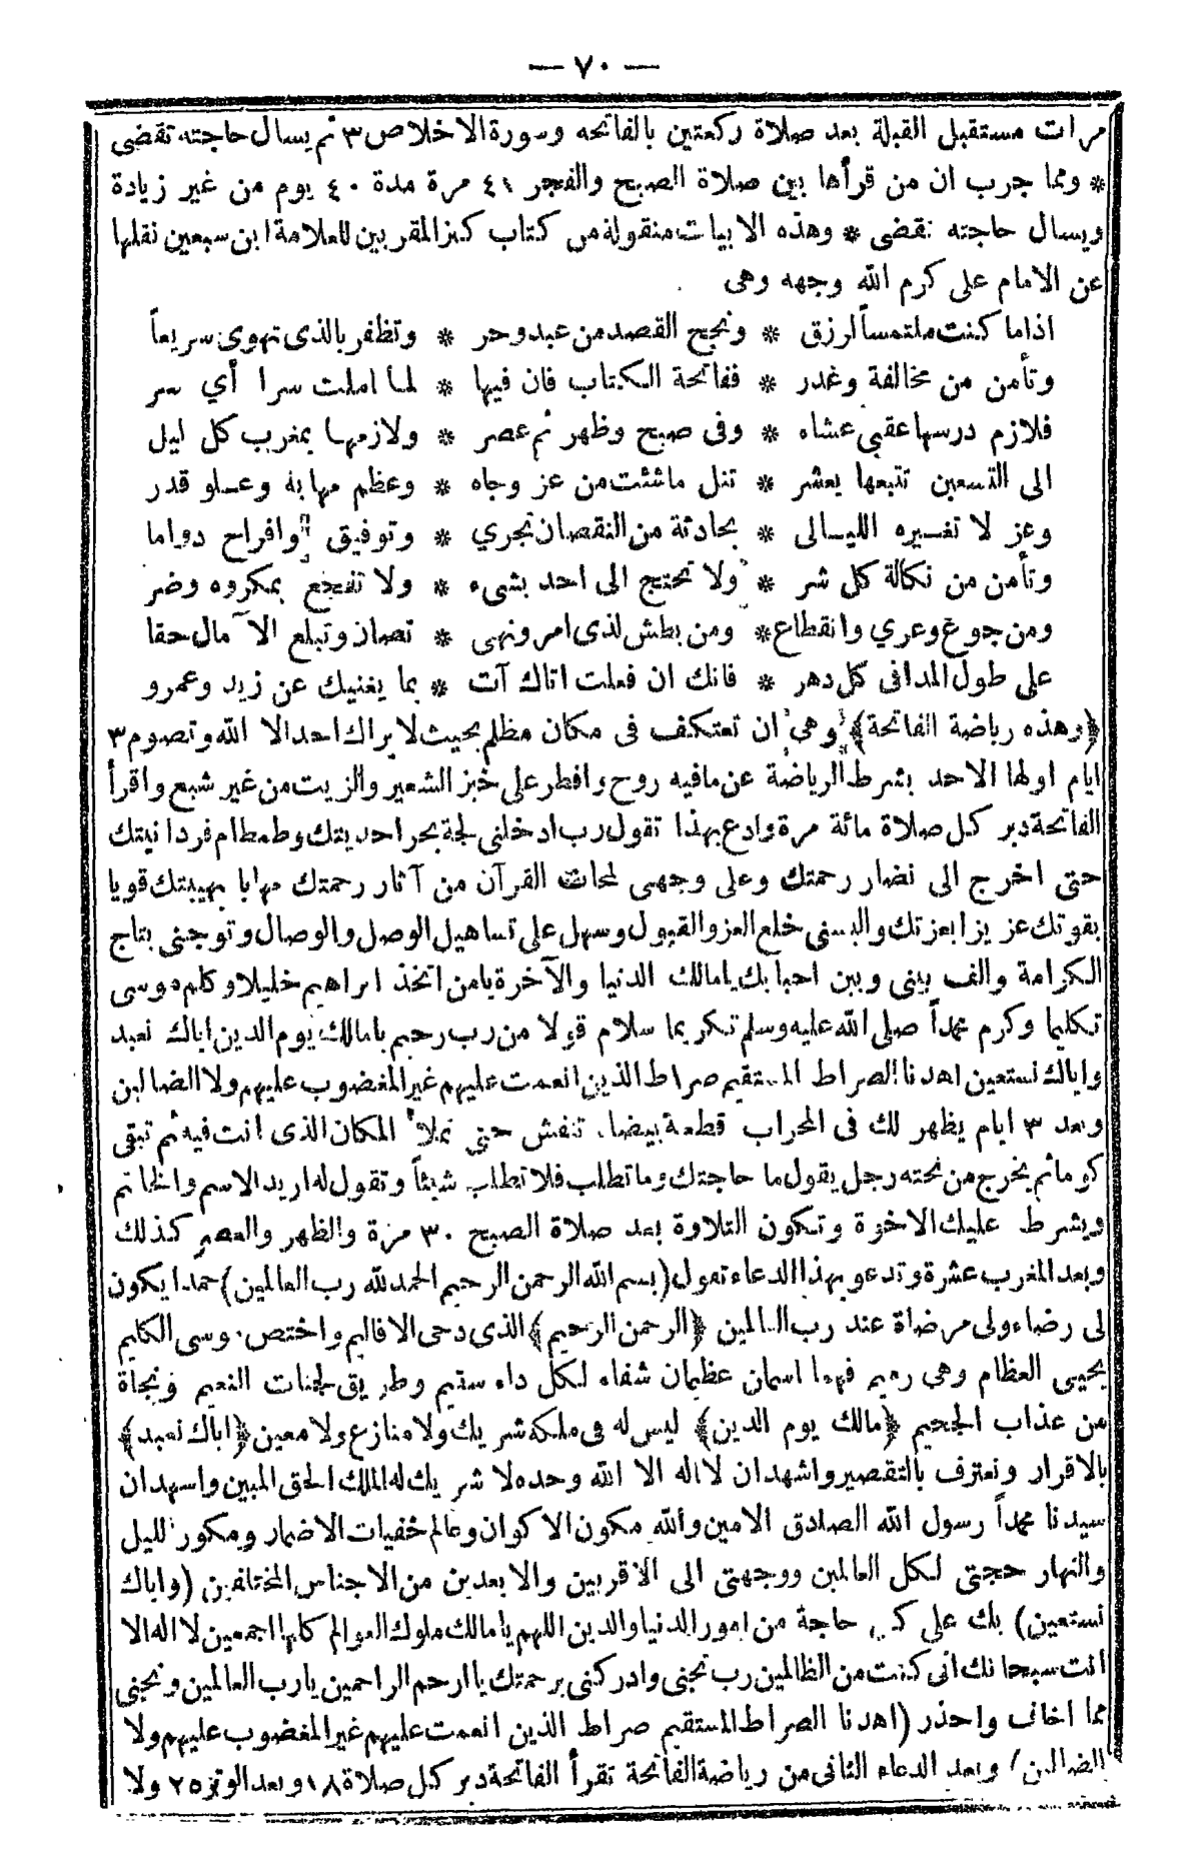 — ٧٠ —
مرات مستقبل القبلة بعد صلاة ركعتين بالفاتحه وسورة الاخلاص ٣ ثم يسال حاجته تقضى
* ومما جرب ان من قرأها بين صلاة الصبح والفجر ٤١ مرة مدة ٤٠ يوم من غير زيادة
ويسال حاجته تقضى * وهذه الابيات منقولة من كتاب كنز المقربين للعلامة ابن سبعين نقلها
عن الامام على كرم الله وجهه وهى
اذا ما كنت ملتمساً لرزق * ونجح القصد من عبد وحر * وتظفر بالذى تهوى سريعاً
وتأمن من مخالفة وغدر * ففاتحة الكتاب فان فيها * لما املت سرا أي سر
فلازم درسها عقبى عشاء * وفى صبح وظهر ثم عصر * ولازمها بمغرب كل ليل
الى التسعين تتبعها بعشر * تنل ما شئت من عز وجاه * وعظم مهابة وعلو قدر
وعز لا تغيره الليالى * بحادثة من النقصان تجري * وتوفيق وافراح دواما
وتأمن من نكالة كل شر * ولا تحتج الى احد بشىء * ولا تفجع بمكروه وضر
ومن جوع وعري وانقطاع * ومن بطش لذى امر ونهى * تصان وتبلغ الآمال حقا
على طول المدا فى كل دهر * فانك ان فعلت اتاك آت * بما يغنيك عن زيد وعمرو
﴿وهذه رياضة الفاتحة﴾ وهى ان تعتكف فى مكان مظلم بحيث لا يراك احد الا الله وتصوم ٣
ايام اولها الاحد بشرط الرياضة عن ما فيه روح وافطر على خبز الشعير والزيت من غير شبع واقرأ
الفاتحة دبر كل صلاة مائة مرة وادع بهذا تقول رب ادخلنى لجة بحر احديتك وطمطام فردانيتك
حتى اخرج الى نضار رحمتك وعلى وجهى لمحات القرآن من آثار رحمتك مهابا بهيبتك قويا
بقوتك عزيزا بعزتك والبسنى خلع العز والقبول وسهل على تساهيل الوصل والوصال وتوجنى بتاج
الكرامة والف بينى وبين احبابك يا مالك الدنيا والآخرة يا من اتخذ ابراهيم خليلا وكلم موسى
تكليما وكرم محمداً صلى الله عليه وسلم تكريما سلام قولا من رب رحيم يا مالك يوم الدين اياك نعبد
واياك نستعين اهدنا الصراط المستقيم صراط الذين انعمت عليهم غير المغضوب عليهم ولا الضالين
وبعد ٣ ايام يظهر لك فى المحراب قطعة بيضاء تنفش حتى تملأ المكان الذى انت فيه ثم تبقى
كوما ثم يخرج من تحته رجل يقول ما حاجتك وما تطلب فلا تطلب شيئاً وتقول له اريد الاسم والخاتم
ويشرط عليك الاخوة وتكون التلاوة بعد صلاة الصبح ٣٠ مرة والظهر والعصر كذلك
وبعد المغرب عشرة وتدعو بهذا الدعاء تقول (بسم الله الرحمن الرحيم الحمد لله رب العالمين) حمدا يكون
لى رضاء ولى مرضاة عند رب العالمين ﴿الرحمن الرحيم﴾ الذى دحى الاقاليم واختص موسى الكليم
يحيى العظام وهى رميم فهما اسمان عظيمان شفاء لكل داء سقيم وطريق لجنات النعيم ونجاة
من عذاب الجحيم ﴿مالك يوم الدين﴾ ليس له فى ملكه شريك ولا منازع ولا معين ﴿اياك نعبد﴾
بالاقرار ونعترف بالتقصير واشهد ان لا اله الا الله وحده لا شريك له الملك الحق المبين واشهد ان
سيدنا محمداً رسول الله الصادق الامين والله مكون الاكوان وعالم خفيات الاضمار ومكور الليل
والنهار حجتى لكل العالمين ووجهتى الى الاقربين والابعدين من الاجناس المختلفين (واياك
نستعين) بك على كل حاجة من امور الدنيا والدين اللهم يا مالك ملوك العوالم كلها اجمعين لا اله الا
انت سبحانك انى كنت من الظالمين رب نجنى وادركنى برحمتك يا ارحم الراحمين يا رب العالمين ونجنى
مما اخاف واحذر (اهدنا الصراط المستقيم صراط الذين انعمت عليهم غير المغضوب عليهم ولا
الضالين) وبعد الدعاء الثانى من رياضة الفاتحة تقرأ الفاتحة دبر كل صلاة ١٨ وبعد الوتر ٢٥ ولا